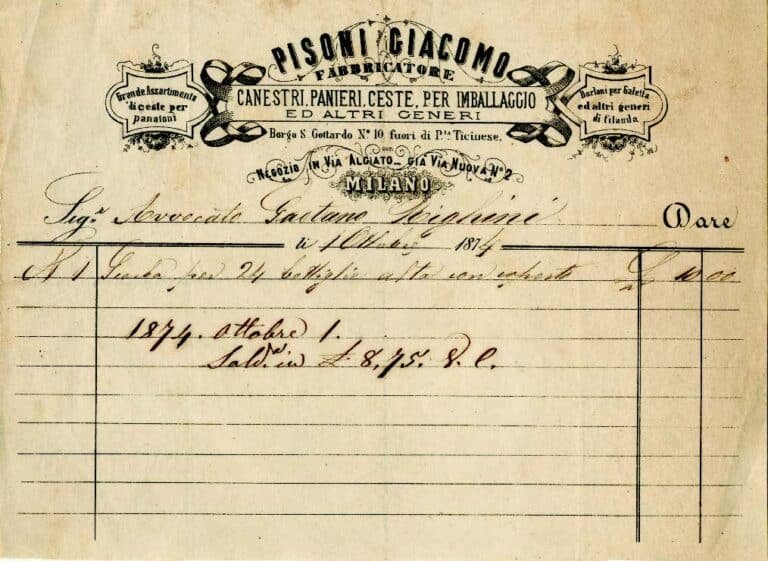 PISONI GIACOMO
FABBRICATORE
CANESTRI, PANIERI, CESTE, PER IMBALLAGGIO
ED ALTRI GENERI
Borgo S. Gottardo N.º 10 fuori di P.ta Ticinese.
Grande Assortimento
di ceste per
panatoni
Borloni per Galetta
ed altri generi
di filanda
NEGOZIO IN VIA ALCIATO_ GIÀ VIA NUOVA Nº 2
MILANO
Sig.r Avvocato Gaetano Righini Dare
li 1 Ottobre 1874
N 1 per 24 bottiglie alta con coperto £ 10 00
1874. Ottobre 1.
Sald.ª in £ 8,75.